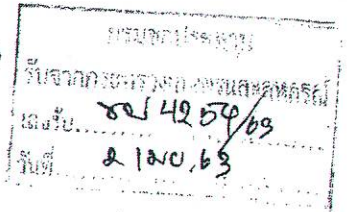 กรมชลประทาน
รับจากกระทรวงเกษตรและสหกรณ์
เลขรับ........ ชป 4254/63
วันที่ 2 เมย. 63